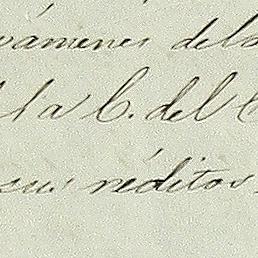 vámenes del
la C. del C
sus réditos